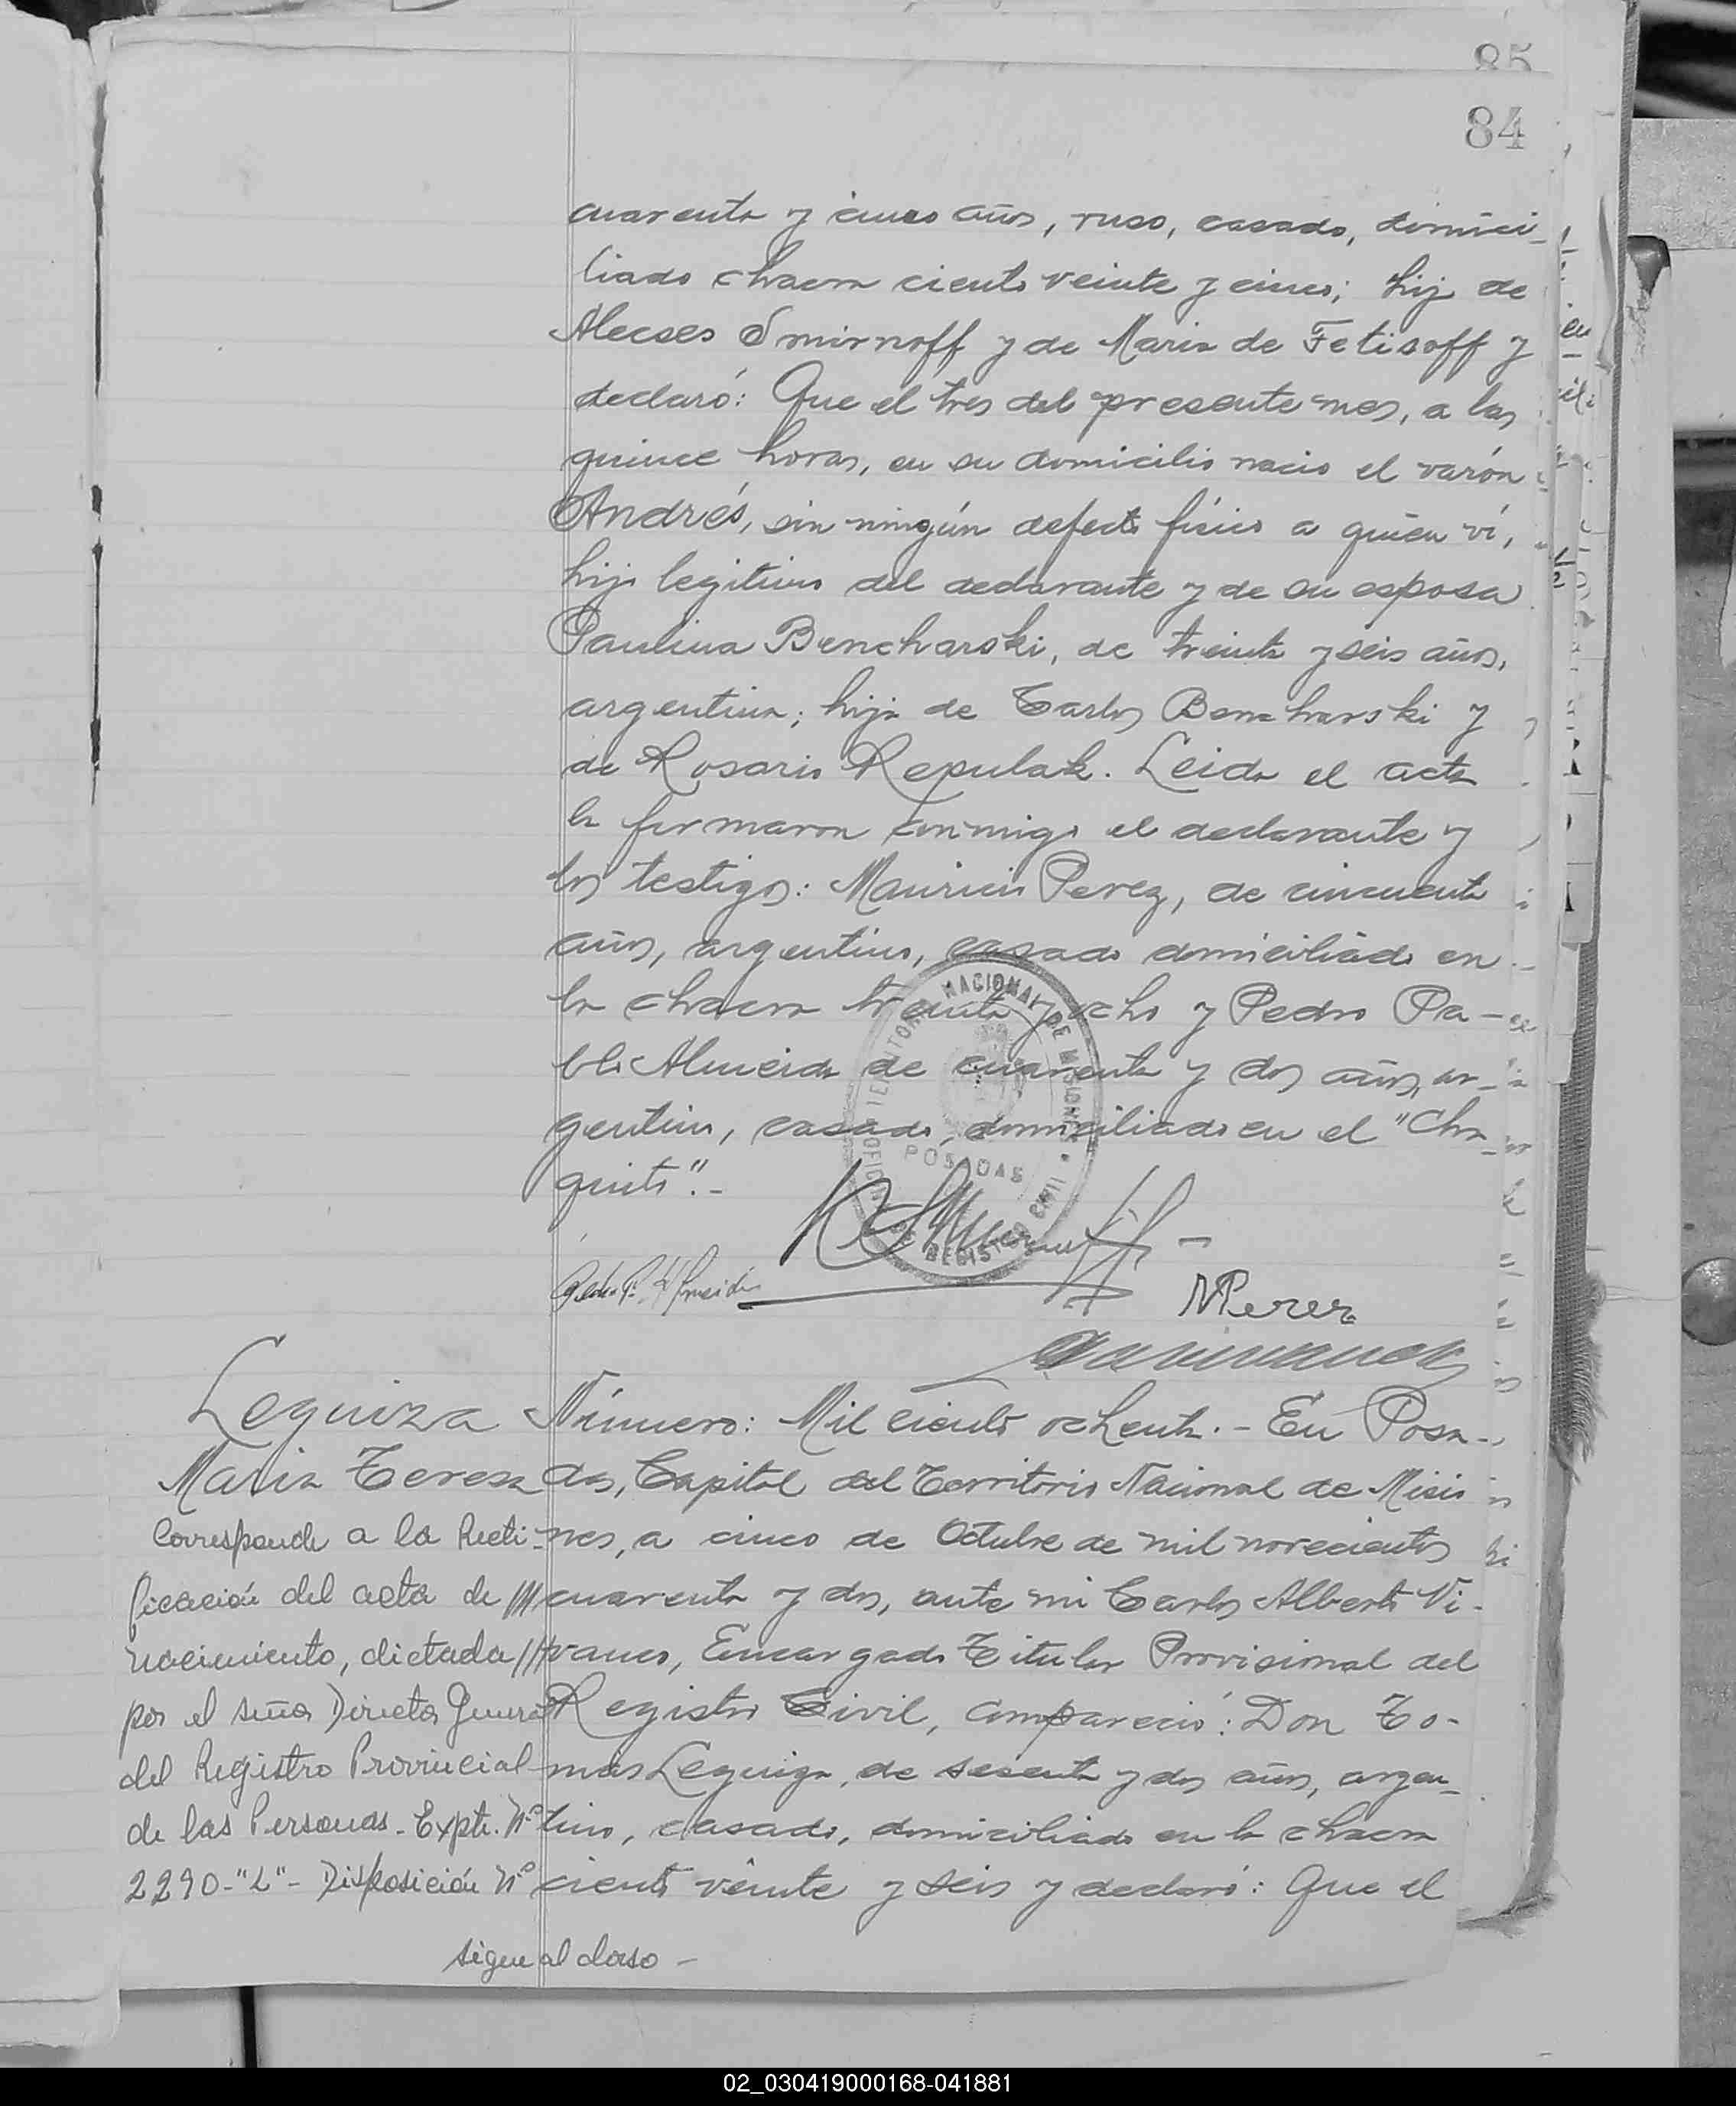 85
84
cuarenta y cinco años, ruso, casado, domici-
liado chacra ciento veinte y cinco; hijo de
Alecses Smirnoff y de Maria de Fetisoff y
declaró: Que el tres del presente mes, a las
quince horas, en su domicilio nacio el varón
Andrés, sin ningún defecto físico a quien ví,
hijo legitimo del declarante y de su esposa
Paulina Bencharski, de treinta y seis años,
argentina; hija de Carlos Bencharski y
de Rosario Repulak. Leida el acta
la firmaron conmigo el declarante y
los testigos: Mauricio Perez, de cincuenta
años, argentino, casado domiciliado en
la chacra treinta y ocho y Pedro Pa-
blo Almeida de cuarenta y dos años, ar-
gentino, casado, domiciliado en el "Cha-
quito".-
OFICINA TERRITORIO NACIONAL DE MISIONES
POSADAS
REGISTRO CIVIL
Pedro P. Almeida
MPerez
Leguiza
Maria Teresa
Corresponde a la Recti-
ficación del acta de ///
nacimiento, dictada ///
por el señor Director General
del Registro Provincial
de las Personas - Expte. Nº
2290-"L"- Disposición Nº
sigue al dorso -
Número: Mil ciento ochenta.- En Posa-
das, Capital del Territorio Nacional de Misio
nes, a cinco de Octubre de mil novecientos
cuarenta y dos, ante mi Carlos Alberto Vi-
vanco, Encargado Titular Provisional del
Registro Civil, compareció: Don To-
mas Leguiza, de sesenta y dos años, argen-
tino, casado, domiciliado en la chacra
ciento veinte y seis y declaró: Que el
02_030419000168-041881